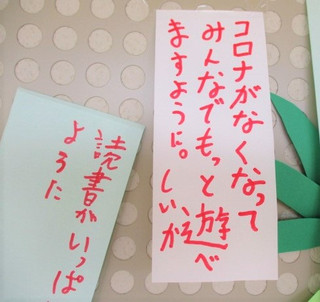 コロナがなくなって
みんなでもっと遊べ
ますように。
読書がいっぱ